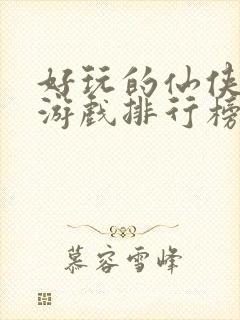 好玩的仙侠
游戏排行榜
慕容雪峰